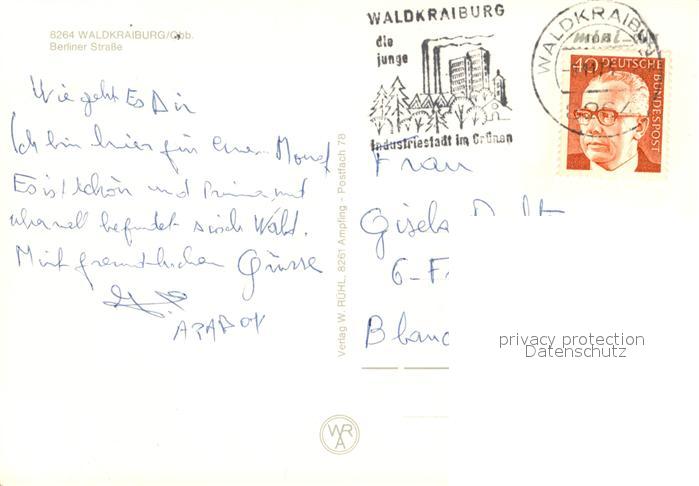 8264 WALDKRAIBURG/Obb.
Berliner Straße
WALDKRAIBURG
die
junge
Industriestadt im Grünen
WALDKRAIBURG
8264
40 DEUTSCHE
BUNDESPOST
Wie geht Es Dir
Ich bin hier für einen Monat
Es ist schön und Prima und
uberall befindet sisch Wald.
Mit freuntlichen Grüsse
Verlag W. RÜHL, 8261 Ampfing - Postfach 78
Frau
Gisela
6-F
Blanc
privacy protection
Datenschutz
WR
A